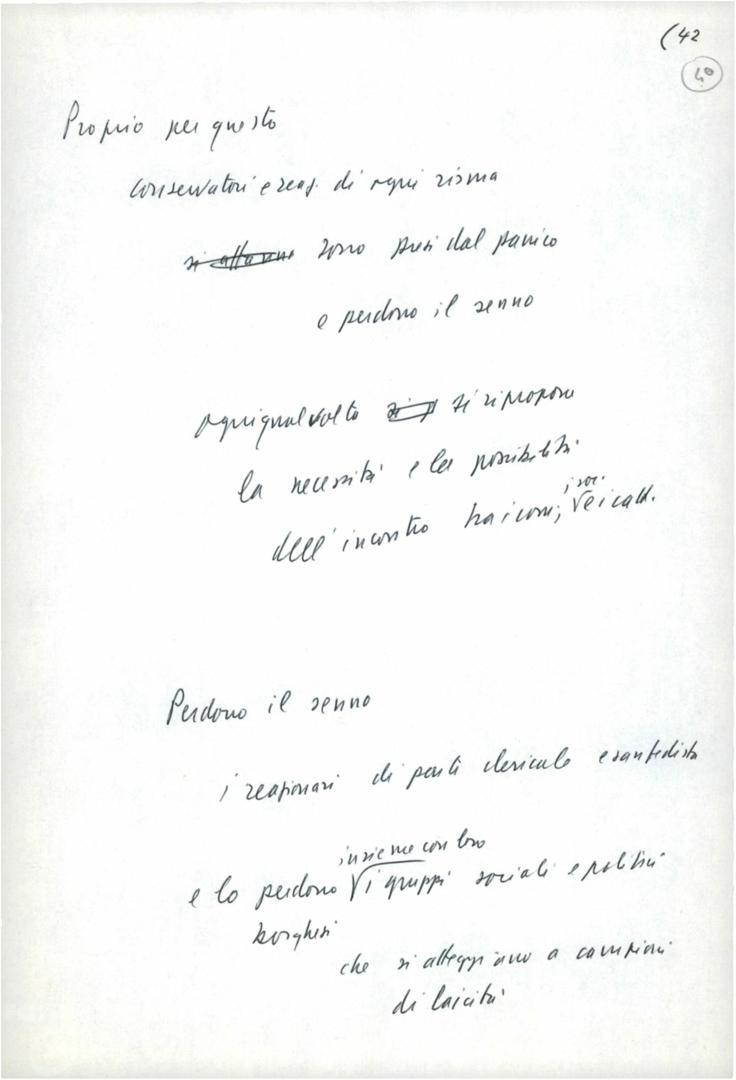 (42
40
Proprio per questo
conservatori e reaz. di ogni risma
si affanno sono presi dal panico
e perdono il senno
ogniqualvolta si ripropone
la necessità e la possibilità
i soc.
dell'incontro tra i com., e i catt.
Perdono il senno
i reazionari di parte clericale e sanfedista
insieme con loro
e lo perdono i gruppi sociali e politici
borghesi
che si atteggiano a campioni
di laicità